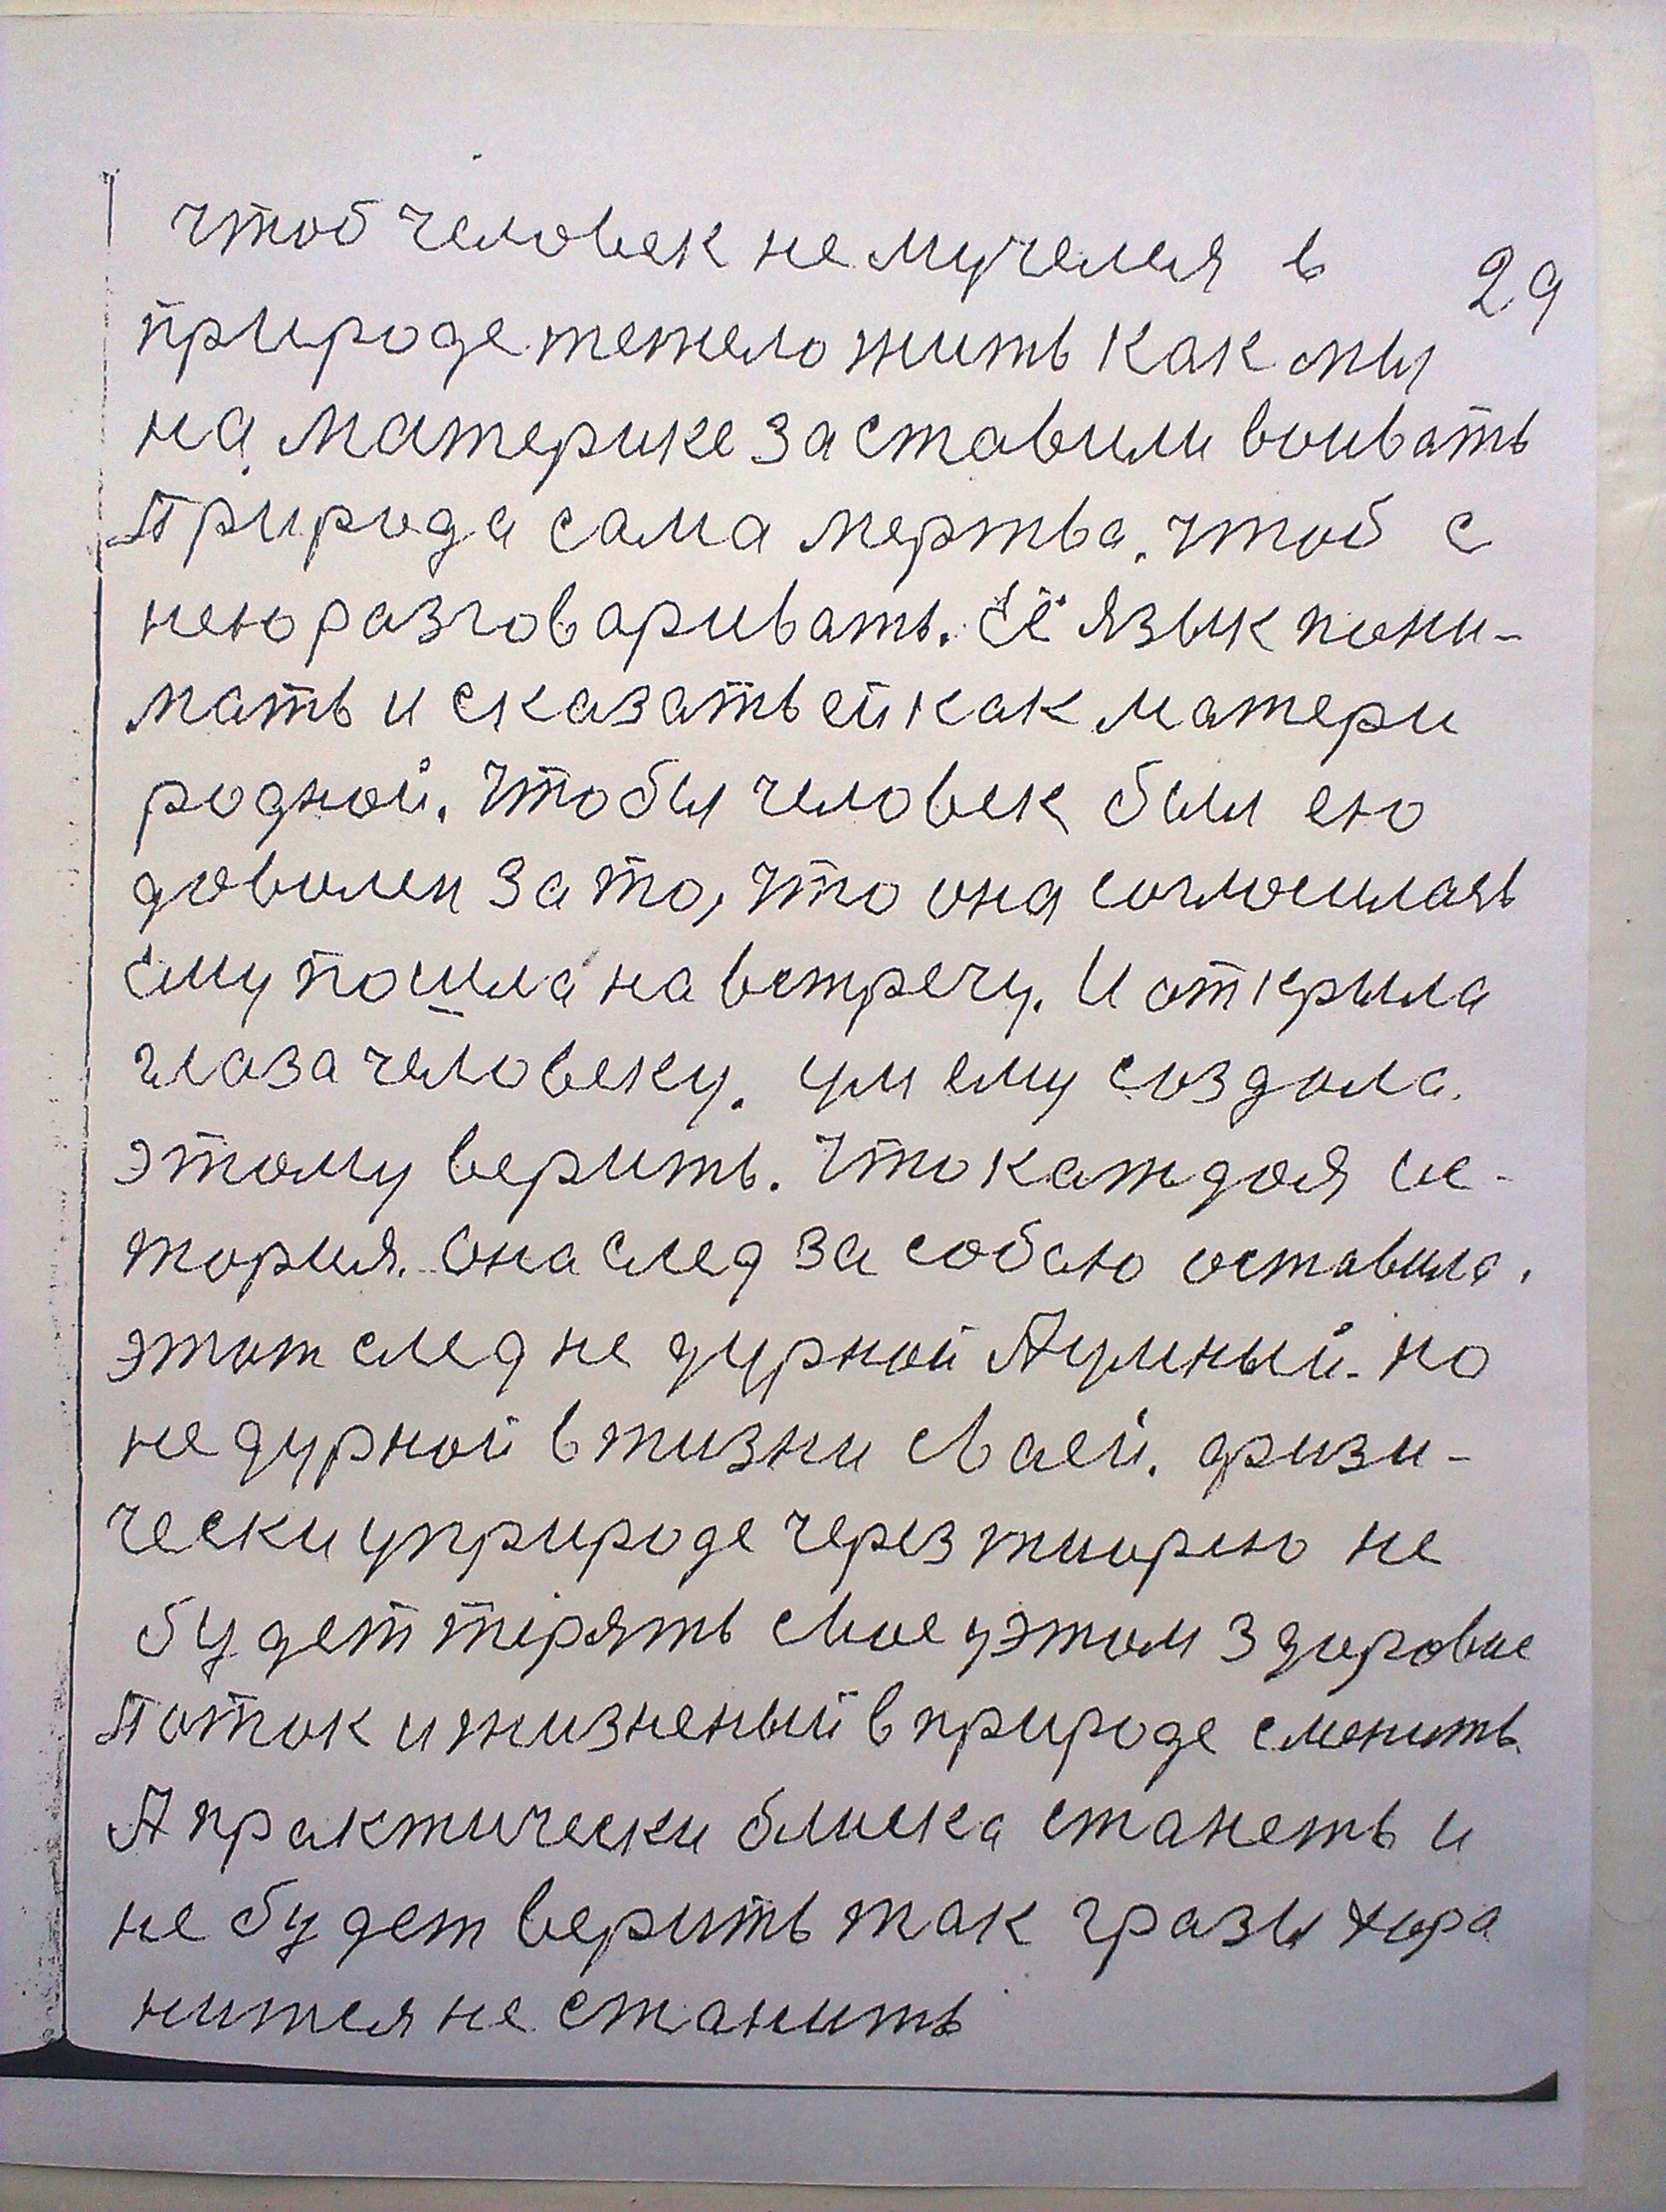 чтоб человек не мучелся в
29
природе тежело жить как мы
на материке заставили воивать
Природа сама мертва. чтоб с
нею разговаривать. Её язык пони-
мать и сказать ей как матери
родной. Чтобы человек был ею
доволен за то, что она согласилась
ему пошла на встречу. И открыла
глаза человеку. ум ему создала.
этому верить. Что каждая ис-
тория. Она след за собою оставила.
этот след не дурной А умный. но
не дурной в жизни сваей. физи-
чески у природе через тиорию не
будет тірять свое у этом здоровие
Паток и жизненый в природе сменить
А практически блиска станеть и
не будет верить так гразы хора
нится не станить